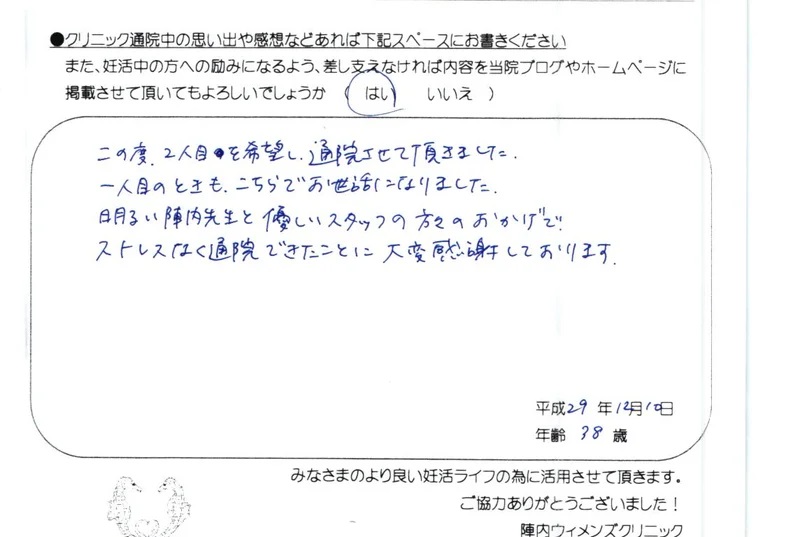 ●クリニック通院中の思い出や感想などあれば下記スペースにお書きください
また、妊活中の方への励みになるよう、差し支えなければ内容を当院ブログやホームページに
掲載させて頂いてもよろしいでしょうか ( はい いいえ )
この度、2人目を希望し、通院させて頂きました.
一人目のときも、こちらでお世話になりました.
明るい陣内先生と優しいスタッフの方々のおかげで
ストレスなく通院できたことに大変感謝しております.
平成29年12月10日
年齢 38 歳
みなさまのより良い妊活ライフの為に活用させて頂きます。
ご協力ありがとうございました！
陣内ウィメンズクリニック